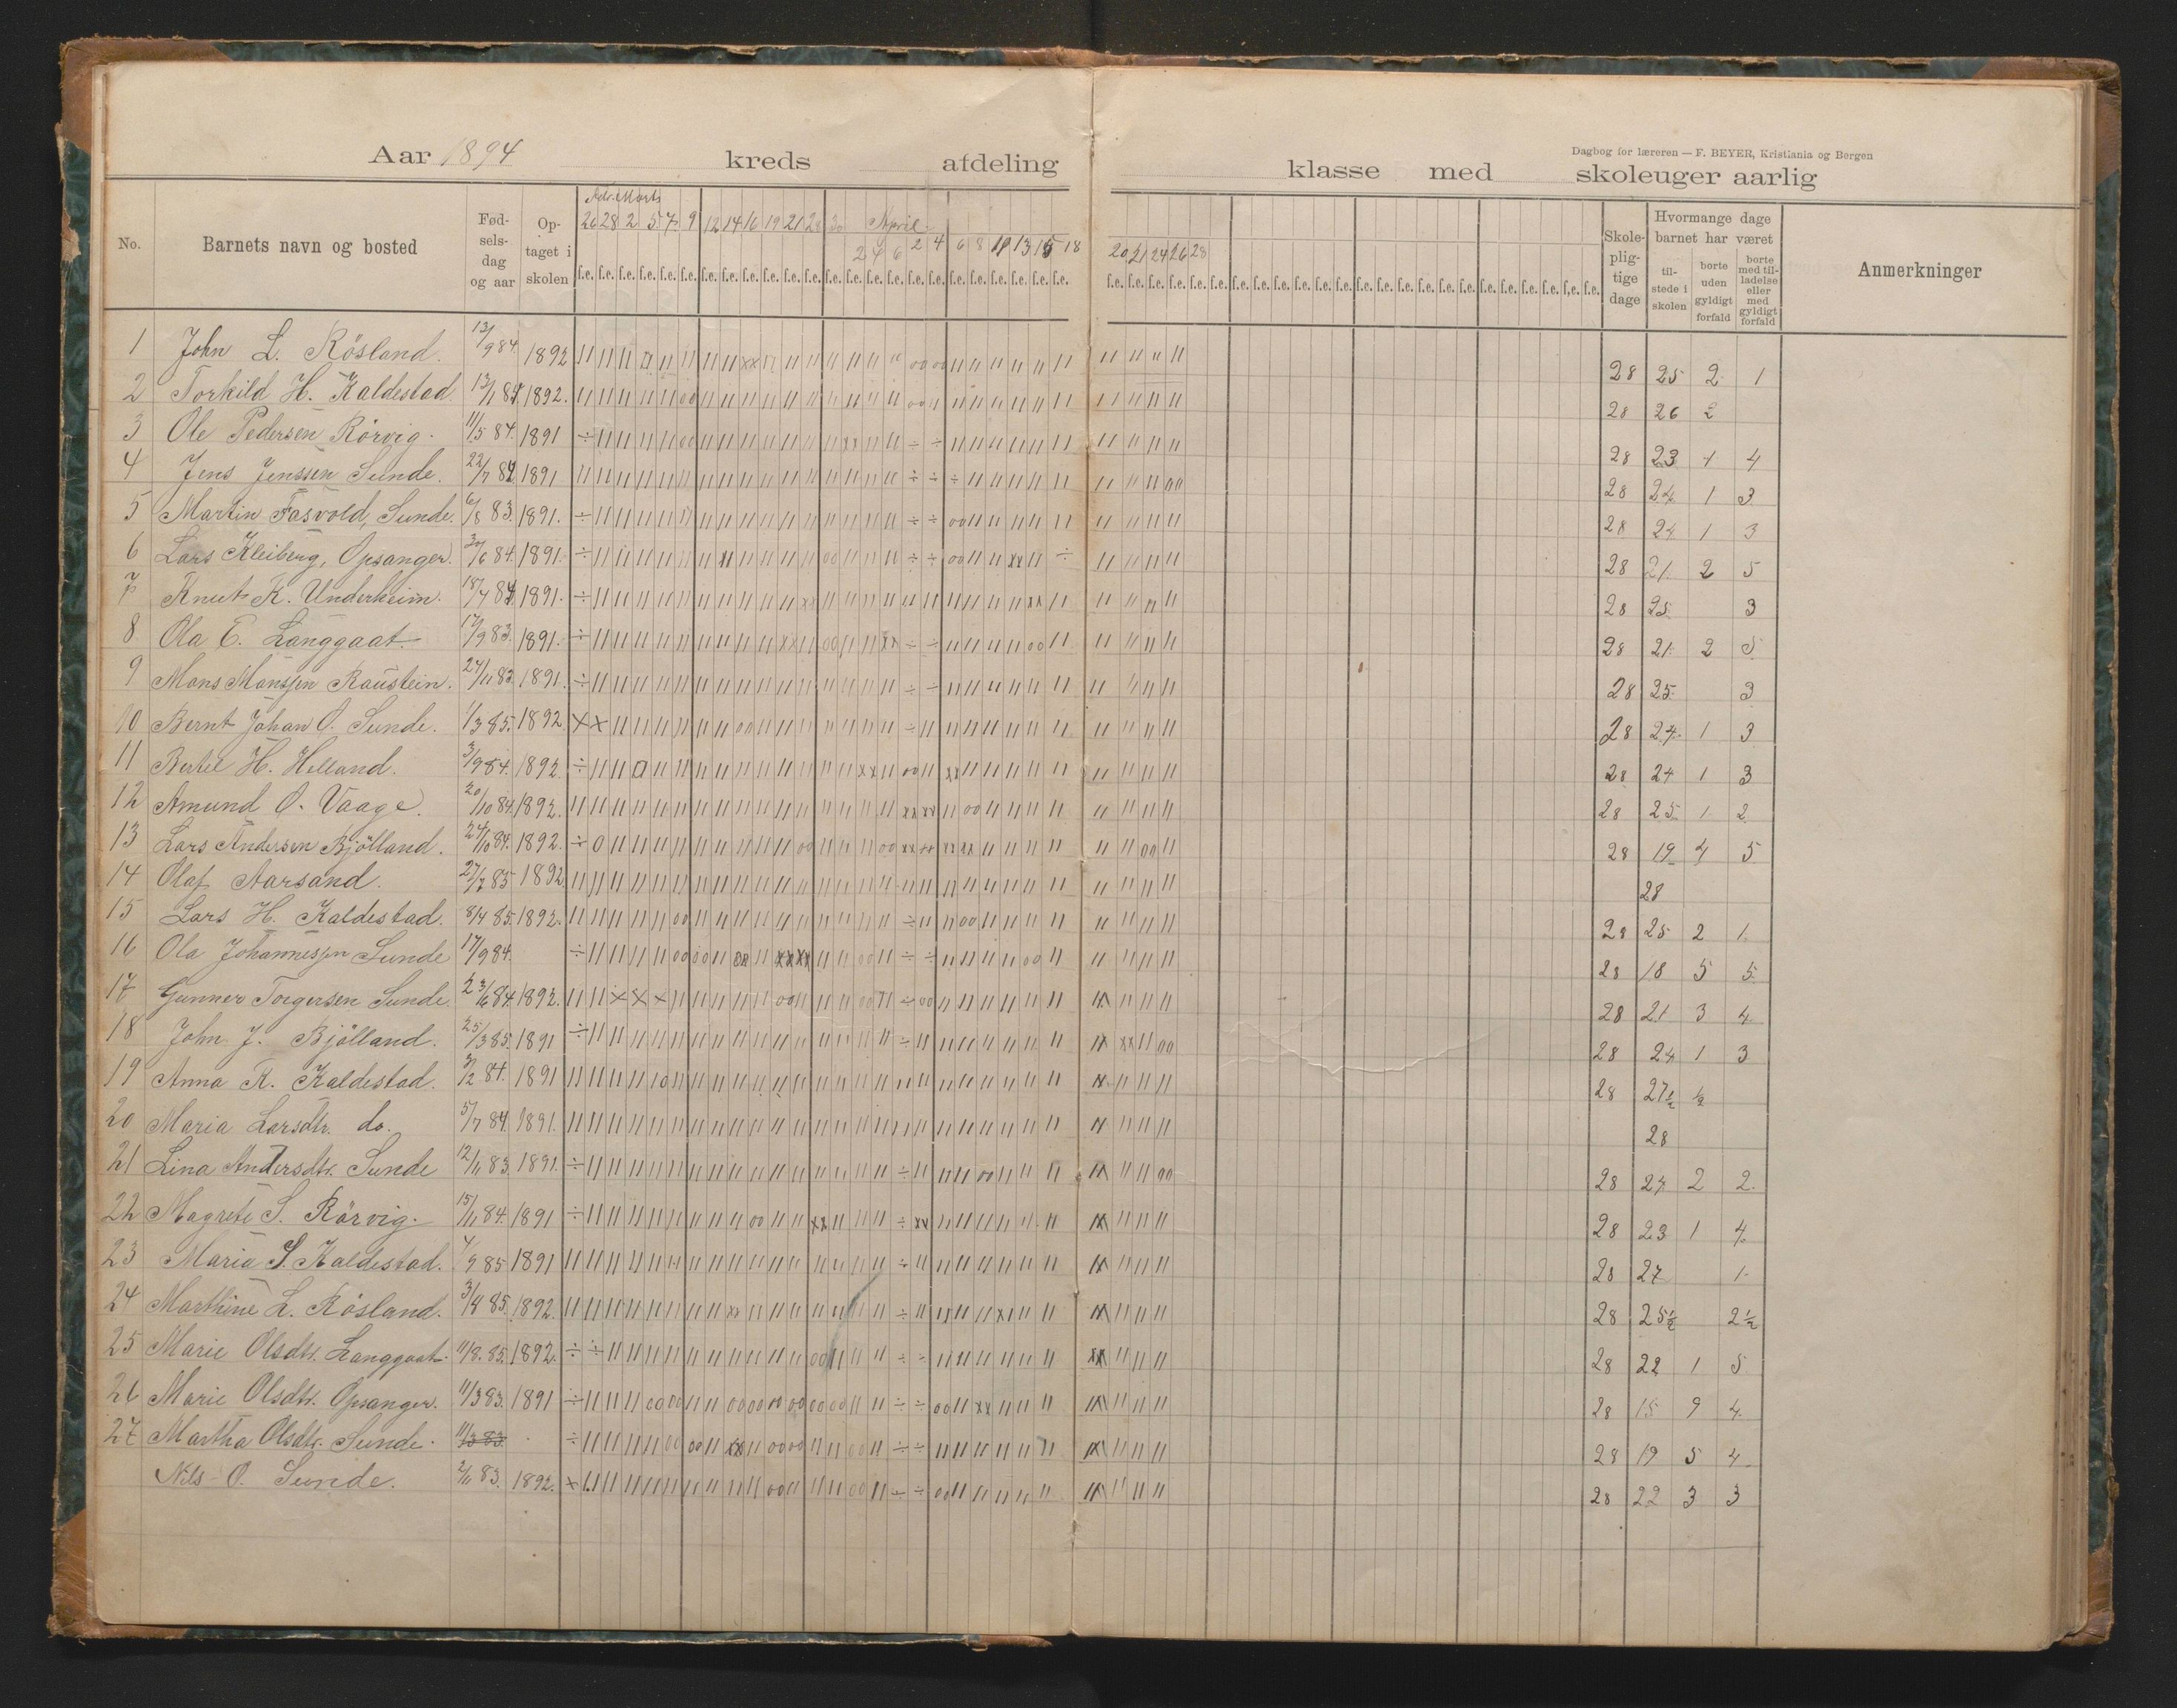 Dagbog for læreren — F. BEYER, Kristiania og Bergen
Aar 1894 kreds afdeling klasse med skoleuger aarlig
No. Barnets navn og bosted Fød-sels-dag og aar Op-taget i skolen Skole-plig-tige dage Hvormange dage barnet har været til-stede i skolen borte uden gyldigt forfald borte med til-ladelse eller med gyldigt forfald Anmerkninger
Marts
26 28 2 5 7 9 12 14 16 19 21 28 30 April
2 4 6 2 4 6 8 11 13 16 18 20 21 24 26 28
f.e. f.e. f.e. f.e. f.e. f.e. f.e. f.e. f.e. f.e. f.e. f.e.
1 John L. Rösland. 13/9 84. 1892 28 25 2 1
2 Torkild H. Kaldestad. 13/1 84 1892. 28 26 2
3 Ole Pedersen Rörvig. 11/5 84. 1891 28 23 1 4
4 Jens Jenssen Sunde. 22/7 84 1891 28 24 1 3
5 Martin Fasvold, Sunde. 6/8 83. 1891. 28 24 1 3
6 Lars Kleiberg, Opsanger. 30/6 84. 1891. 28 21 2 5
7 Knut K. Underheim. 18/7 84 1891. 28 25 3
8 Ola E. Langgaat. 17/9 83. 1891. 28 21 2 5
9 Mons Monssen Raustein. 24/11 83. 1891. 28 25 3
10 Bernt Johan O. Sunde. 1/3 85. 1892 28 24 1 3
11 Bertel H. Helland. 3/9 84. 1892. 28 24 1 3
12 Amund O. Vaage. 20/10 84. 1892. 28 25 1 2
13 Lars Andersen Bjölland. 24/10 84. 1892. 28 19 4 5
14 Olaf Aarsand. 27/7 85 1892 28
15 Lars H. Kaldestad. 8/4 85. 1892. 28 25 2 1
16 Ola Johannessen Sunde 17/9 84. 28 18 5 5
17 Gunner Torgersen Sunde 23/6 84. 1892. 28 21 3 4
18 John J. Bjölland. 25/3 85. 1891 28 24 1 3
19 Anna K. Kaldestad. 3/2 84. 1891 28 27½ ½
20 Maria Larsdtr. do. 5/7 84. 1891. 28
21 Lina Andersdtr. Sunde 12/11 83. 1891. 28 24 2 2
22 Magrete S. Rörvig. 15/11 84. 1891 28 23 1 4
23 Maria S. Kaldestad. 9 85 1891 28 27 1
24 Marthine L. Rösland. 3/4 85. 1892. 28 25½ 2½
25 Marie Olsdtr. Langgaat. 11/8. 85. 1892. 28 22 1 5
26 Marie Olsdtr. Opsanger. 11/3 83. 1891 28 15 9 4
27 Martha Olsdtr. Sunde. 11/3 83. 28 19 5 4
Nils O. Sunde. 2/11 83. 1892. 28 22 3 3